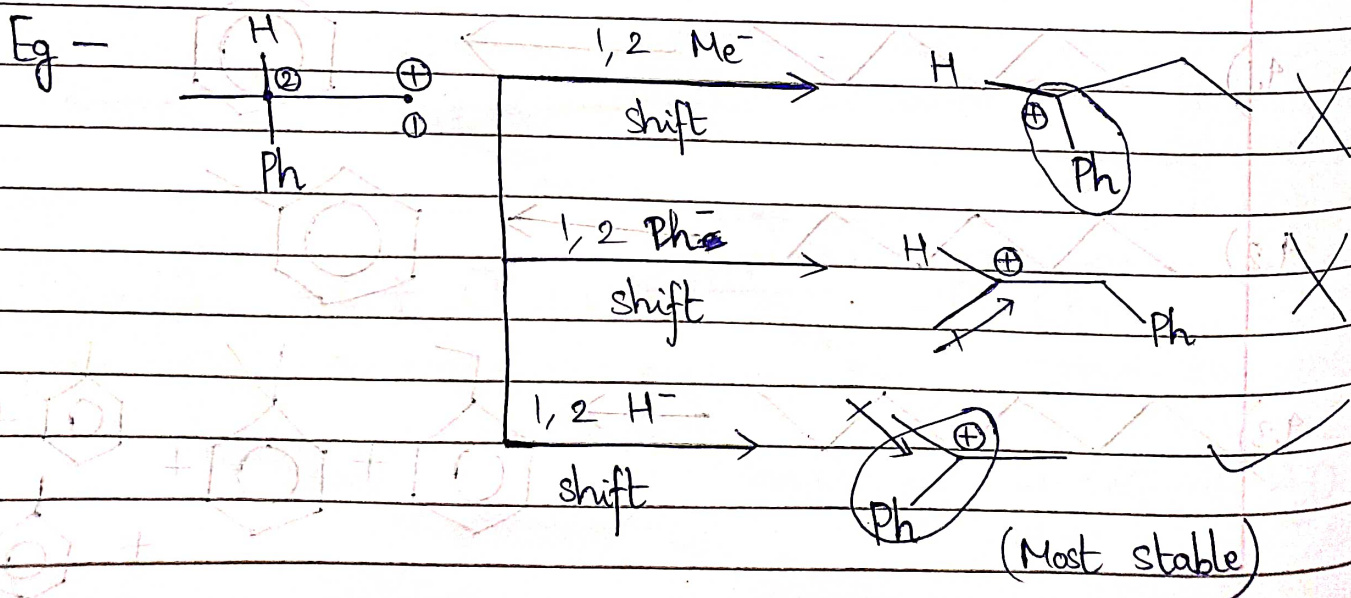 Eg — H 1,2 Me⁻ H
② ⊕ shift ⊕
① Ph
Ph
1,2 Ph⁻ H ⊕
shift Ph
1,2 H⁻ ⊕
shift Ph
(Most stable)